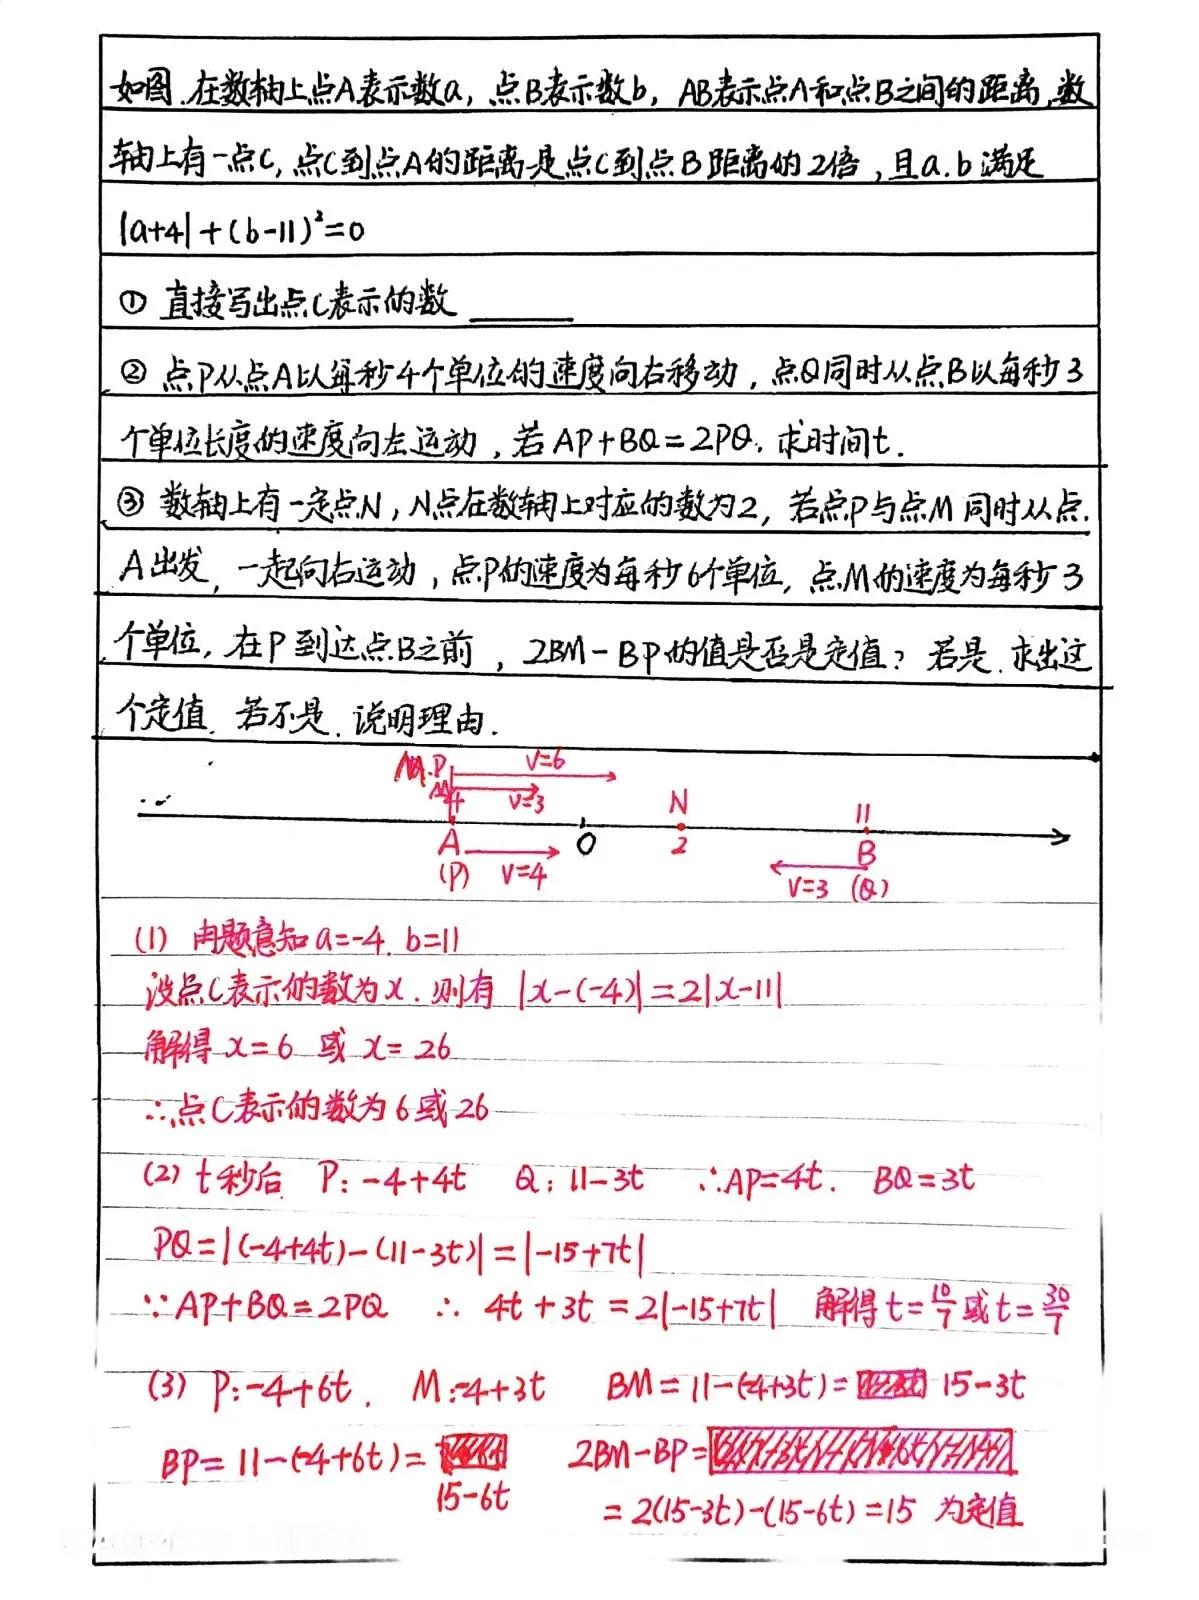 如图.在数轴上点A表示数a，点B表示数b，AB表示点A和点B之间的距离，数
轴上有一点C，点C到点A的距离是点C到点B距离的2倍，且a.b满足
|a+4|+(b-11)²=0
① 直接写出点C表示的数
② 点P从点A以每秒4个单位的速度向右移动，点Q同时从点B以每秒3
个单位长度的速度向左运动，若AP+BQ=2PQ，求时间t.
③ 数轴上有一定点N，N点在数轴上对应的数为2，若点P与点M同时从点
A出发，一起向右运动，点P的速度为每秒6个单位，点M的速度为每秒3
个单位，在P到达点B之前，2BM-BP的值是否是定值？若是.求出这
个定值.若不是.说明理由.
P V=6
M V=3
N 11
A O 2 B
(P) V=4 V=3 (Q)
(1) 由题意知a=-4. b=11
设点C表示的数为x.则有 |x-(-4)|=2|x-11|
解得 x=6 或 x=26
∴点C表示的数为6或26
(2) t秒后 P:-4+4t Q:11-3t ∴AP=4t. BQ=3t
PQ=|(-4+4t)-(11-3t)|=|-15+7t|
∵AP+BQ=2PQ ∴ 4t+3t=2|-15+7t| 解得t=10/7或t=30/7
(3) P:-4+6t. M:-4+3t BM=11-(-4+3t)= 15-3t
BP=11-(-4+6t)= 2BM-BP=
15-6t =2(15-3t)-(15-6t)=15 为定值